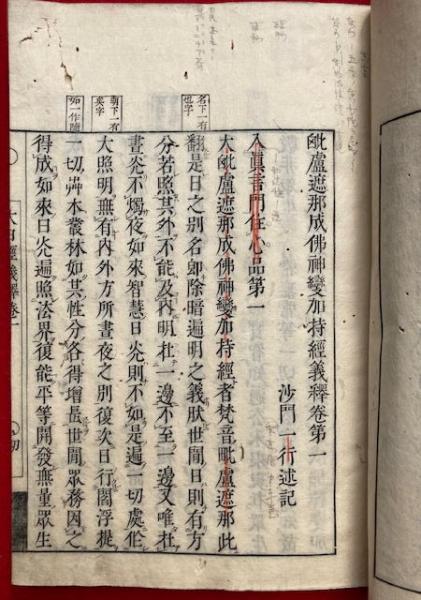 毗盧遮那成佛神變加持經義釋卷第一
沙門一行述記
入眞言門住心品第一
大毗盧遮那成佛神變加持經者梵音毗盧遮那此
翻是日之別名即除暗遍明之義然世間日則有方
分若照其外不能及內明在一邊不至一邊又唯在
晝光不燭夜如來智慧日光則不如是遍一切處作
大照明無有內外方所晝夜之別復次日行閻浮提
一切艸木叢林如其性分各得增長世間眾務因之
得成如來日光遍照法界復能平等開發無量眾生
名下一有
也字
朝下一有
矣字
如一作隨
大日經義釋卷一
初